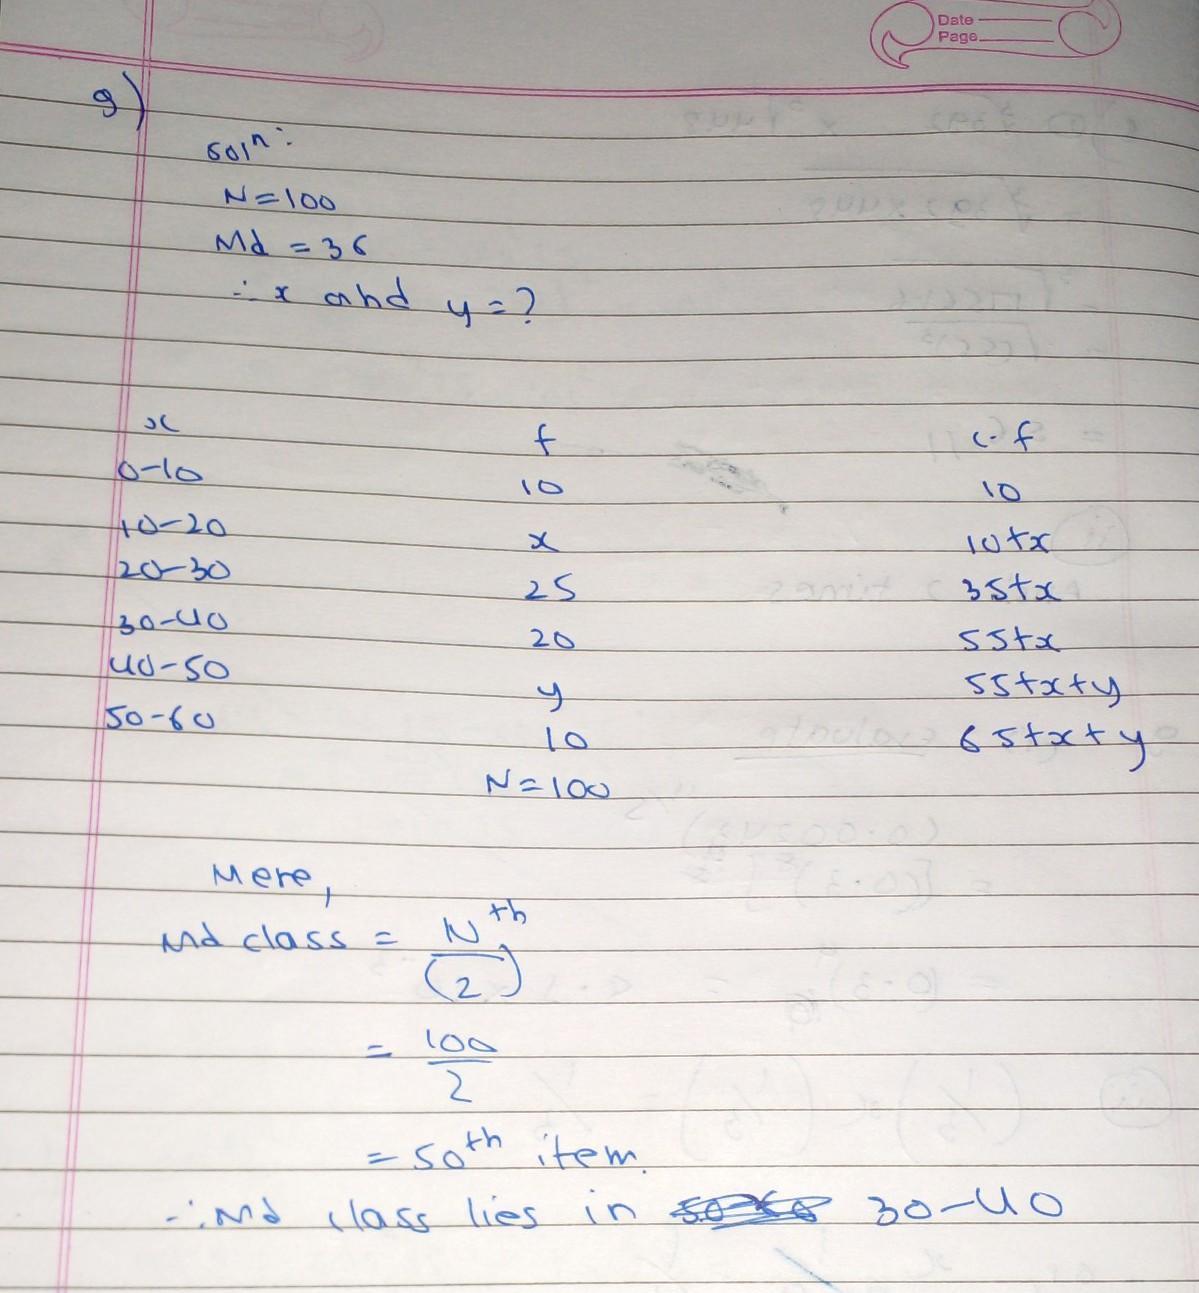 Date
Page
9)
Solⁿ:
N=100
Md = 36
∴ x and y = ?
x f c.f
0-10 10 10
10-20 x 10+x
20-30 25 35+x
30-40 20 55+x
40-50 y 55+x+y
50-60 10 65+x+y
N=100
Here,
Md class = (N/2)ᵗʰ
= 100/2
= 50ᵗʰ item.
∴ Md class lies in 30-40